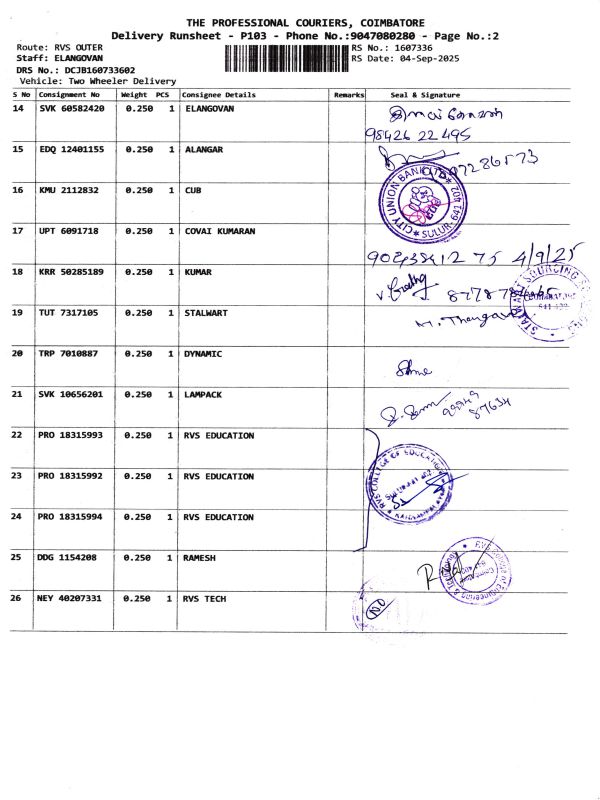 THE PROFESSIONAL COURIERS, COIMBATORE
Delivery Runsheet - P103 - Phone No.:9047080280 - Page No.:2
Route: RVS OUTER RS No.: 1607336
Staff: ELANGOVAN RS Date: 04-Sep-2025
DRS No.: DCJB160733602
Vehicle: Two Wheeler Delivery
S No Consignment No Weight PCS Consignee Details Remarks Seal & Signature
14 SVK 60582420 0.250 1 ELANGOVAN
98426 22 495
15 EDQ 12401155 0.250 1 ALANGAR
16 KMU 2112832 0.250 1 CUB
CITY UNION BANK LTD
SULUR-641 402
17 UPT 6091718 0.250 1 COVAI KUMARAN
4/9/25
18 KRR 50285189 0.250 1 KUMAR
19 TUT 7317105 0.250 1 STALWART
20 TRP 7010887 0.250 1 DYNAMIC
21 SVK 10656201 0.250 1 LAMPACK
99949
87634
22 PRO 18315993 0.250 1 RVS EDUCATION
23 PRO 18315992 0.250 1 RVS EDUCATION
RVS COLLEGE OF EDUCATION
24 PRO 18315994 0.250 1 RVS EDUCATION
25 DDG 1154208 0.250 1 RAMESH
26 NEY 40207331 0.250 1 RVS TECH